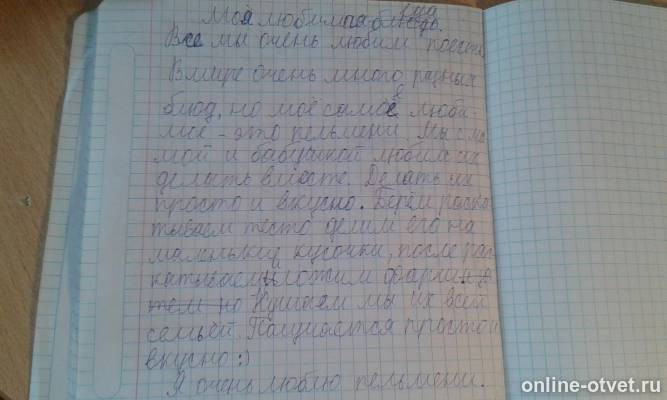 Моя любимая еда
Все мы очень любим поесть.
В мире очень много разных
блюд, но моё самое люби-
мое - это пельмени. Мы с ма-
мой и бабушкой любим их
делать вместе. Делать их
просто и вкусно. Берём раска-
тываем тесто делим его на
маленькие кусочки, после рас-
катываем и ложим фарш
но Кушаем мы их всей
семьёй. Получается просто и
вкусно :)
Я очень люблю пельмени.
online-otvet.ru